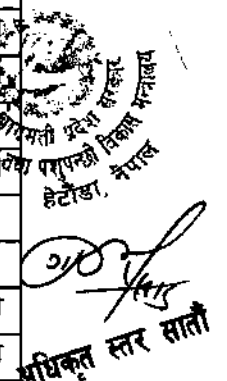 बागमती प्रदेश सरकार
तथा पशुपन्छी विकास मन्त्रालय
हेटौंडा, नेपाल
अधिकृत स्तर सातौं